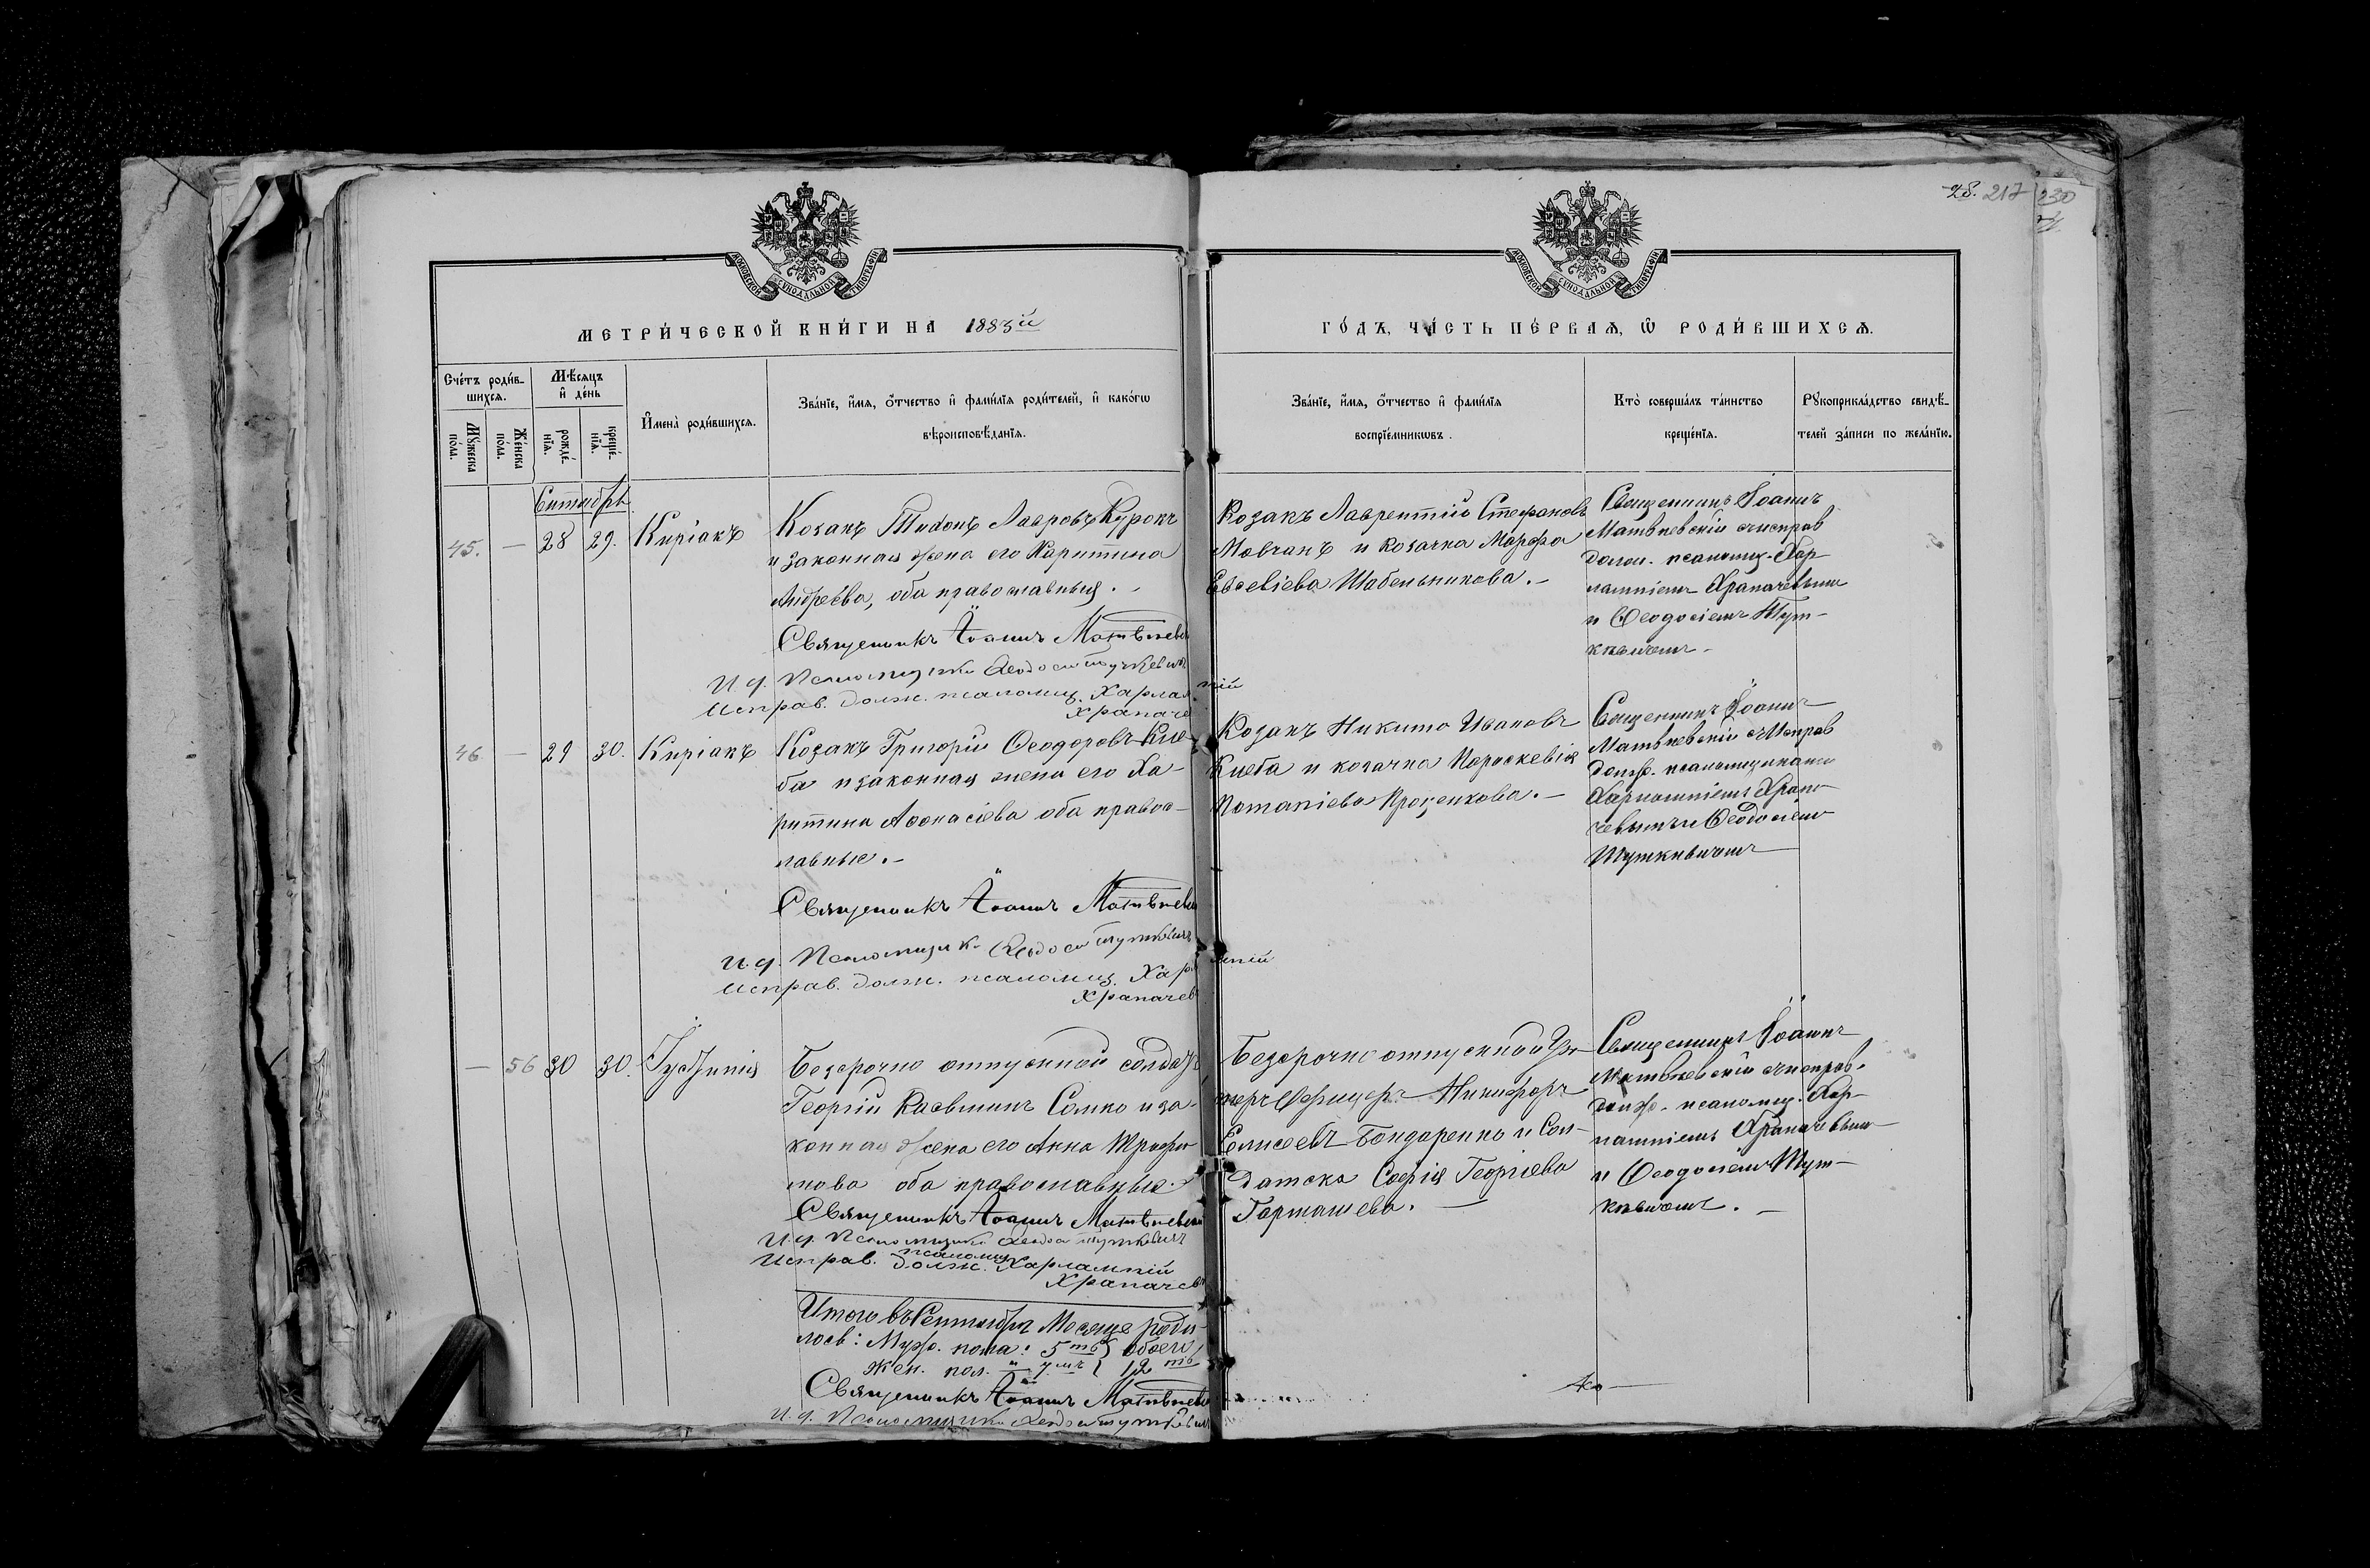 28. 217 230
МОСКОВСКОЙ СѴНОДАЛЬНОЙ ТИПОГРАФІИ
МОСКОВСКОЙ СѴНОДАЛЬНОЙ ТИПОГРАФІИ
МЕТРИ́ЧЕСКОЙ КНИ́ГИ НА 1883й
ГО́ДЪ, ЧА́СТЬ ПЕ́РВАЯ, Ѿ РОДИ́ВШИХСЯ.
Сче́тъ роди́в-
шихся.
Мѣ́сяцъ
и҆ де́нь
Мꙋ́жеска
по́ла.
Же́нска
по́ла.
рожде́-
нїя.
креще́-
нїя.
И҆мена̀ роди́вшихся.
Зва́нїе, и҆́мя, ѻ҆́тчество и҆ фами́лїя роди́телей, и҆ како́гѡ
вѣроисповѣ́данїя.
Зва́нїе, и҆́мя, ѻ҆́тчество и҆ фами́лїя
воспрїе́мникѡвъ.
Кто̀ соверша́лъ та́инство
креще́нїя.
Рꙋкоприкла́дство свидѣ́-
телей за́писи по жела́нїю.
Сентябрь
45. — 28 29. Киріакъ
Козакъ Тидонъ Лавровъ Курокъ
и законная жена его Харитина
Андреева, оба православныя. -
Священникъ Іоаннъ Матвѣевск
И. д. Псаломщика Ѳеодосій Туткевичъ
Исправ. долж. псаломщ. Харлампій
Храпаче
Козакъ Лаврентій Стефановъ
Мовчанъ и козачка Марфа
Евсевіева Шабельникова. -
Священникъ Іоаннъ
Матвѣевскій съ исправ
долж. псаломщ. Хар-
лампіемъ Храпачевымъ
и Ѳеодосіемъ Тут-
кевичемъ -
46 — 29 30. Киріакъ
Козакъ Григорій Ѳеодоровъ Кие-
ба и законная жена его Ха-
ритина Аѳонасіева оба правос-
лавные. -
Священникъ Іоаннъ Матвѣевск
И. д. Псаломщика Ѳеодосій Туткевичъ
Исправ. долж. псаломщ. Харлампій
Храпачев
Козакъ Никита Ивановъ
Киеба и козачка Параскевія
Потапіева Проценкова. -
Священникъ Іоаннъ
Матвѣевскій съ Исправ
долж. псаломщиками
Харлампіемъ Храпа-
чевымъ и Ѳеодосіемъ
Туткевичемъ
— 56 30 30. Іустинія
Безсрочно отпускной солдатъ
Георгій Касьминъ Сомко и за-
конная жена его Анна Трофи
мова оба православные. -
Священникъ Іоаннъ Матвѣевскій
И. д. Псаломщика Ѳеодосій Туткевичъ
Исправ. долж. псаломщ. Харлампій
Храпачев
Безсрочно отпускной Ун-
теръ Офицеръ Никифоръ
Елисеевъ Бондаренко и Сол-
датска Софія Георгіева
Гарташева. —
Священникъ Іоаннъ
Матвѣевскій съ исправ.
долж. псаломщ. Хар-
лампіемъ Храпачевым
и Ѳеодосіемъ Тут-
кевичемъ. -
Итого въ Сентябрѣ Месяце роди-
лось: Муж. пола: 5ть} обоего
Жен. пол. " 7мь} 12ть
Священникъ Іоаннъ Матвѣевск
И. д. Псаломщика Ѳеодосій Туткевичъ